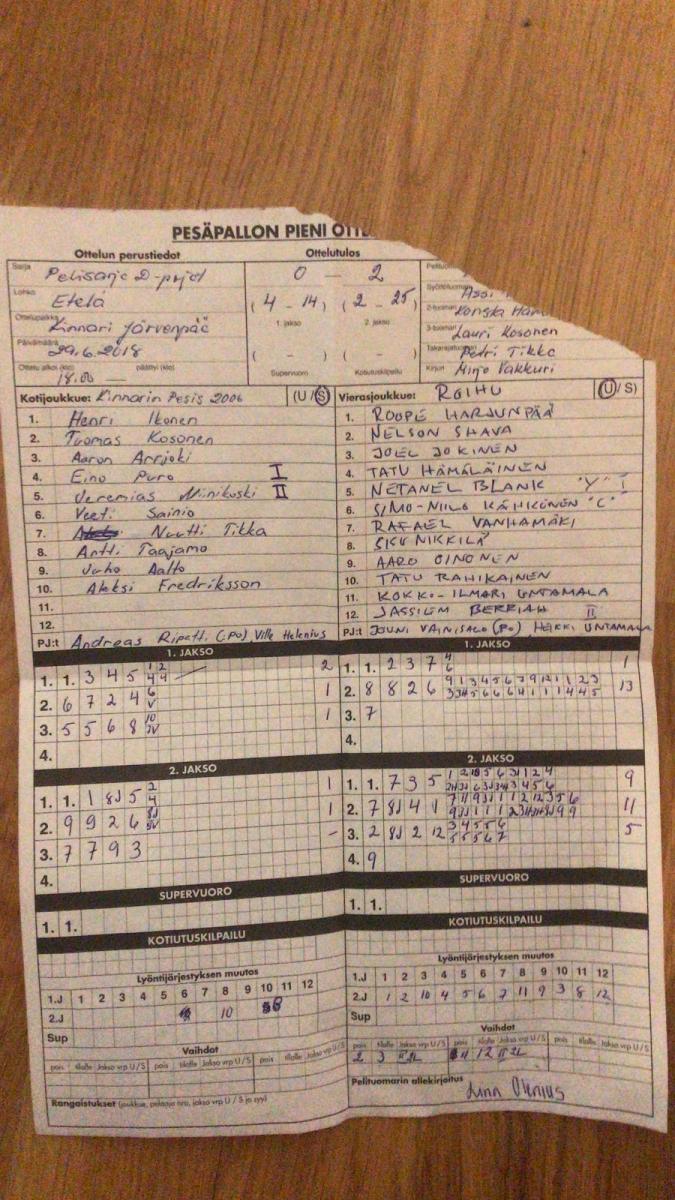 PESÄPALLON PIENI OTTE
Ottelun perustiedot Ottelutulos
Sarja Pelisarja D-pojat
0 — 2
Lohko Etelä
(4 - 14) (2 - 25)
1. jakso 2. jakso
Ottelupaikka Kinnari Järvenpää
Päivämäärä 29.6.2018
( - ) ( - )
Supervuoro Kotiutuskilpailu
Ottelu alkoi (klo) 18.00 — päättyi (klo)
2-tuomari
3-tuomari Lauri Kosonen
Takarajatuomari Petri Tikka
Kirjuri Mirjo Vakkuri
Kotijoukkue: Kinnarin Pesis 2006 (U / S)
1. Henri Ikonen
2. Tuomas Kosonen
3. Aaron Arrjoki
4. Eino Puro I
5. Jeremias Miinikoski II
6. Veeti Sainio
7. Nuutti Tikka
8. Antti Taajamo
9. Juho Aalto
10. Aleksi Fredriksson
11.
12.
PJ:t Andreas Ripatti (PJ) Ville Helenius
Vierasjoukkue: ROIHU (U / S)
1. ROOPE HARJUNPÄÄ
2. NELSON SHAVA
3. JOEL JOKINEN
4. TATU HÄMÄLÄINEN
5. NETANEL BLANK "Y" I
6. SIMO-NIILO KÄHKÖNEN "C"
7. RAFAEL VANHAMÄKI
8. SKY NIKKILÄ
9. AARO OINONEN
10. TATU RAHIKAINEN
11. KOKKO-ILMARI UNTAMALA
12. JASSIEM BERRIAH II
PJ:t JOUNI VAINISALO (PJ) HEIKKI UNTAMALA
1. JAKSO
1. 1. 3 4 5 2
2. 6 7 2 4 1
3. 5 5 6 8 1
4.
1. JAKSO
1. 1. 2 3 7 4 6 1
2. 8 8 2 6 13
3. 7
4.
2. JAKSO
1. 1. 1 8J 5 2 4 1
2. 9 9 2 6 1
3. 7 7 9 3 -
4.
2. JAKSO
1. 1. 7 3 5 9
2. 7 8J 4 1 11
3. 2 8J 2 12 5
4. 9
SUPERVUORO
1. 1.
SUPERVUORO
1. 1.
KOTIUTUSKILPAILU
KOTIUTUSKILPAILU
Lyöntijärjestyksen muutos
1.J 1 2 3 4 5 6 7 8 9 10 11 12
2.J 10 8
Sup
Lyöntijärjestyksen muutos
1.J 1 2 3 4 5 6 7 8 9 10 11 12
2.J 1 2 10 4 5 6 7 11 9 3 8 12
Sup
Vaihdot
pois tilalle Jakso vrp U/S pois tilalle Jakso vrp U/S pois tilalle Jakso vrp U/S
Vaihdot
pois tilalle Jakso vrp U/S pois tilalle Jakso vrp U/S pois tilalle Jakso vrp U/S
2 3 4 12
Rangaistukset (joukkue, pelaaja nro, jakso vrp U / S ja syy)
Pelituomarin allekirjoitus